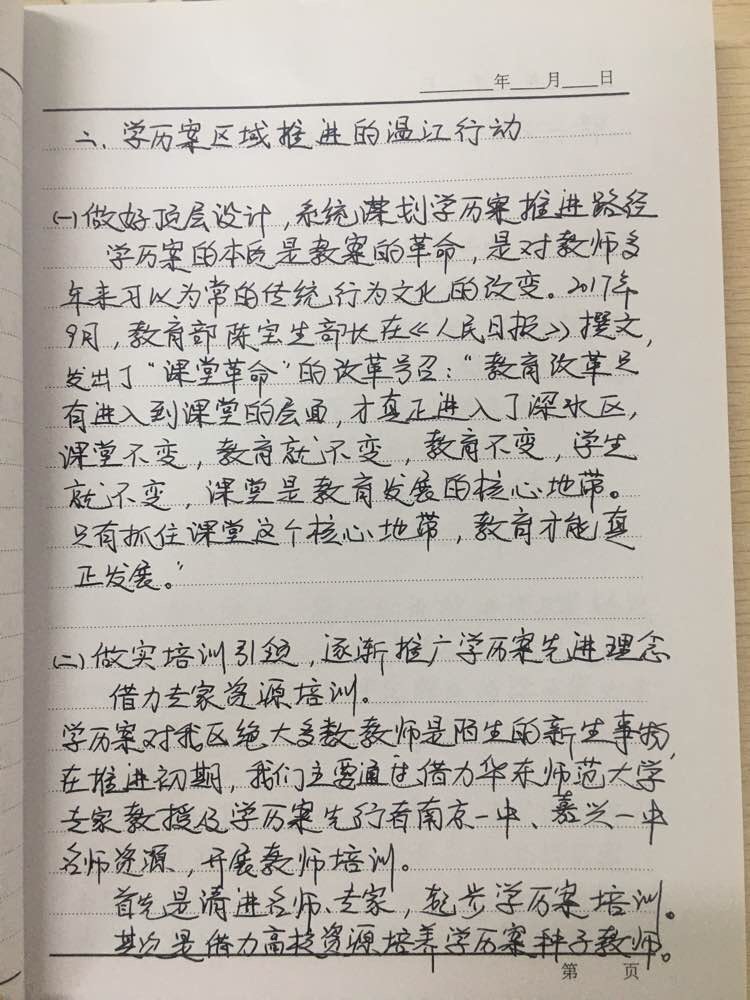 年 月 日
二、学历案区域推进的温江行动
(一)做好顶层设计,系统谋划学历案推进路径
学历案的本质是教案的革命,是对教师多
年来习以为常的传统行为文化的改变。2017年
9月,教育部陈宝生部长在《人民日报》撰文,
发出了“课堂革命”的改革号召:“教育改革只
有进入到课堂的层面,才真正进入了深水区,
课堂不变,教育就不变,教育不变,学生
就不变,课堂是教育发展的核心地带。
只有抓住课堂这个核心地带,教育才能真
正发展。”
(二)做实培训引领,逐渐推广学历案先进理念
借力专家资源培训。
学历案对我区绝大多数教师是陌生的新生事物,
在推进初期,我们主要通过借力华东师范大学
专家教授及学历案先行者南京一中、嘉兴一中
名师资源,开展教师培训。
首先是请进名师、专家,起步学历案培训。
其次是借力高校资源培养学历案种子教师。
第 页